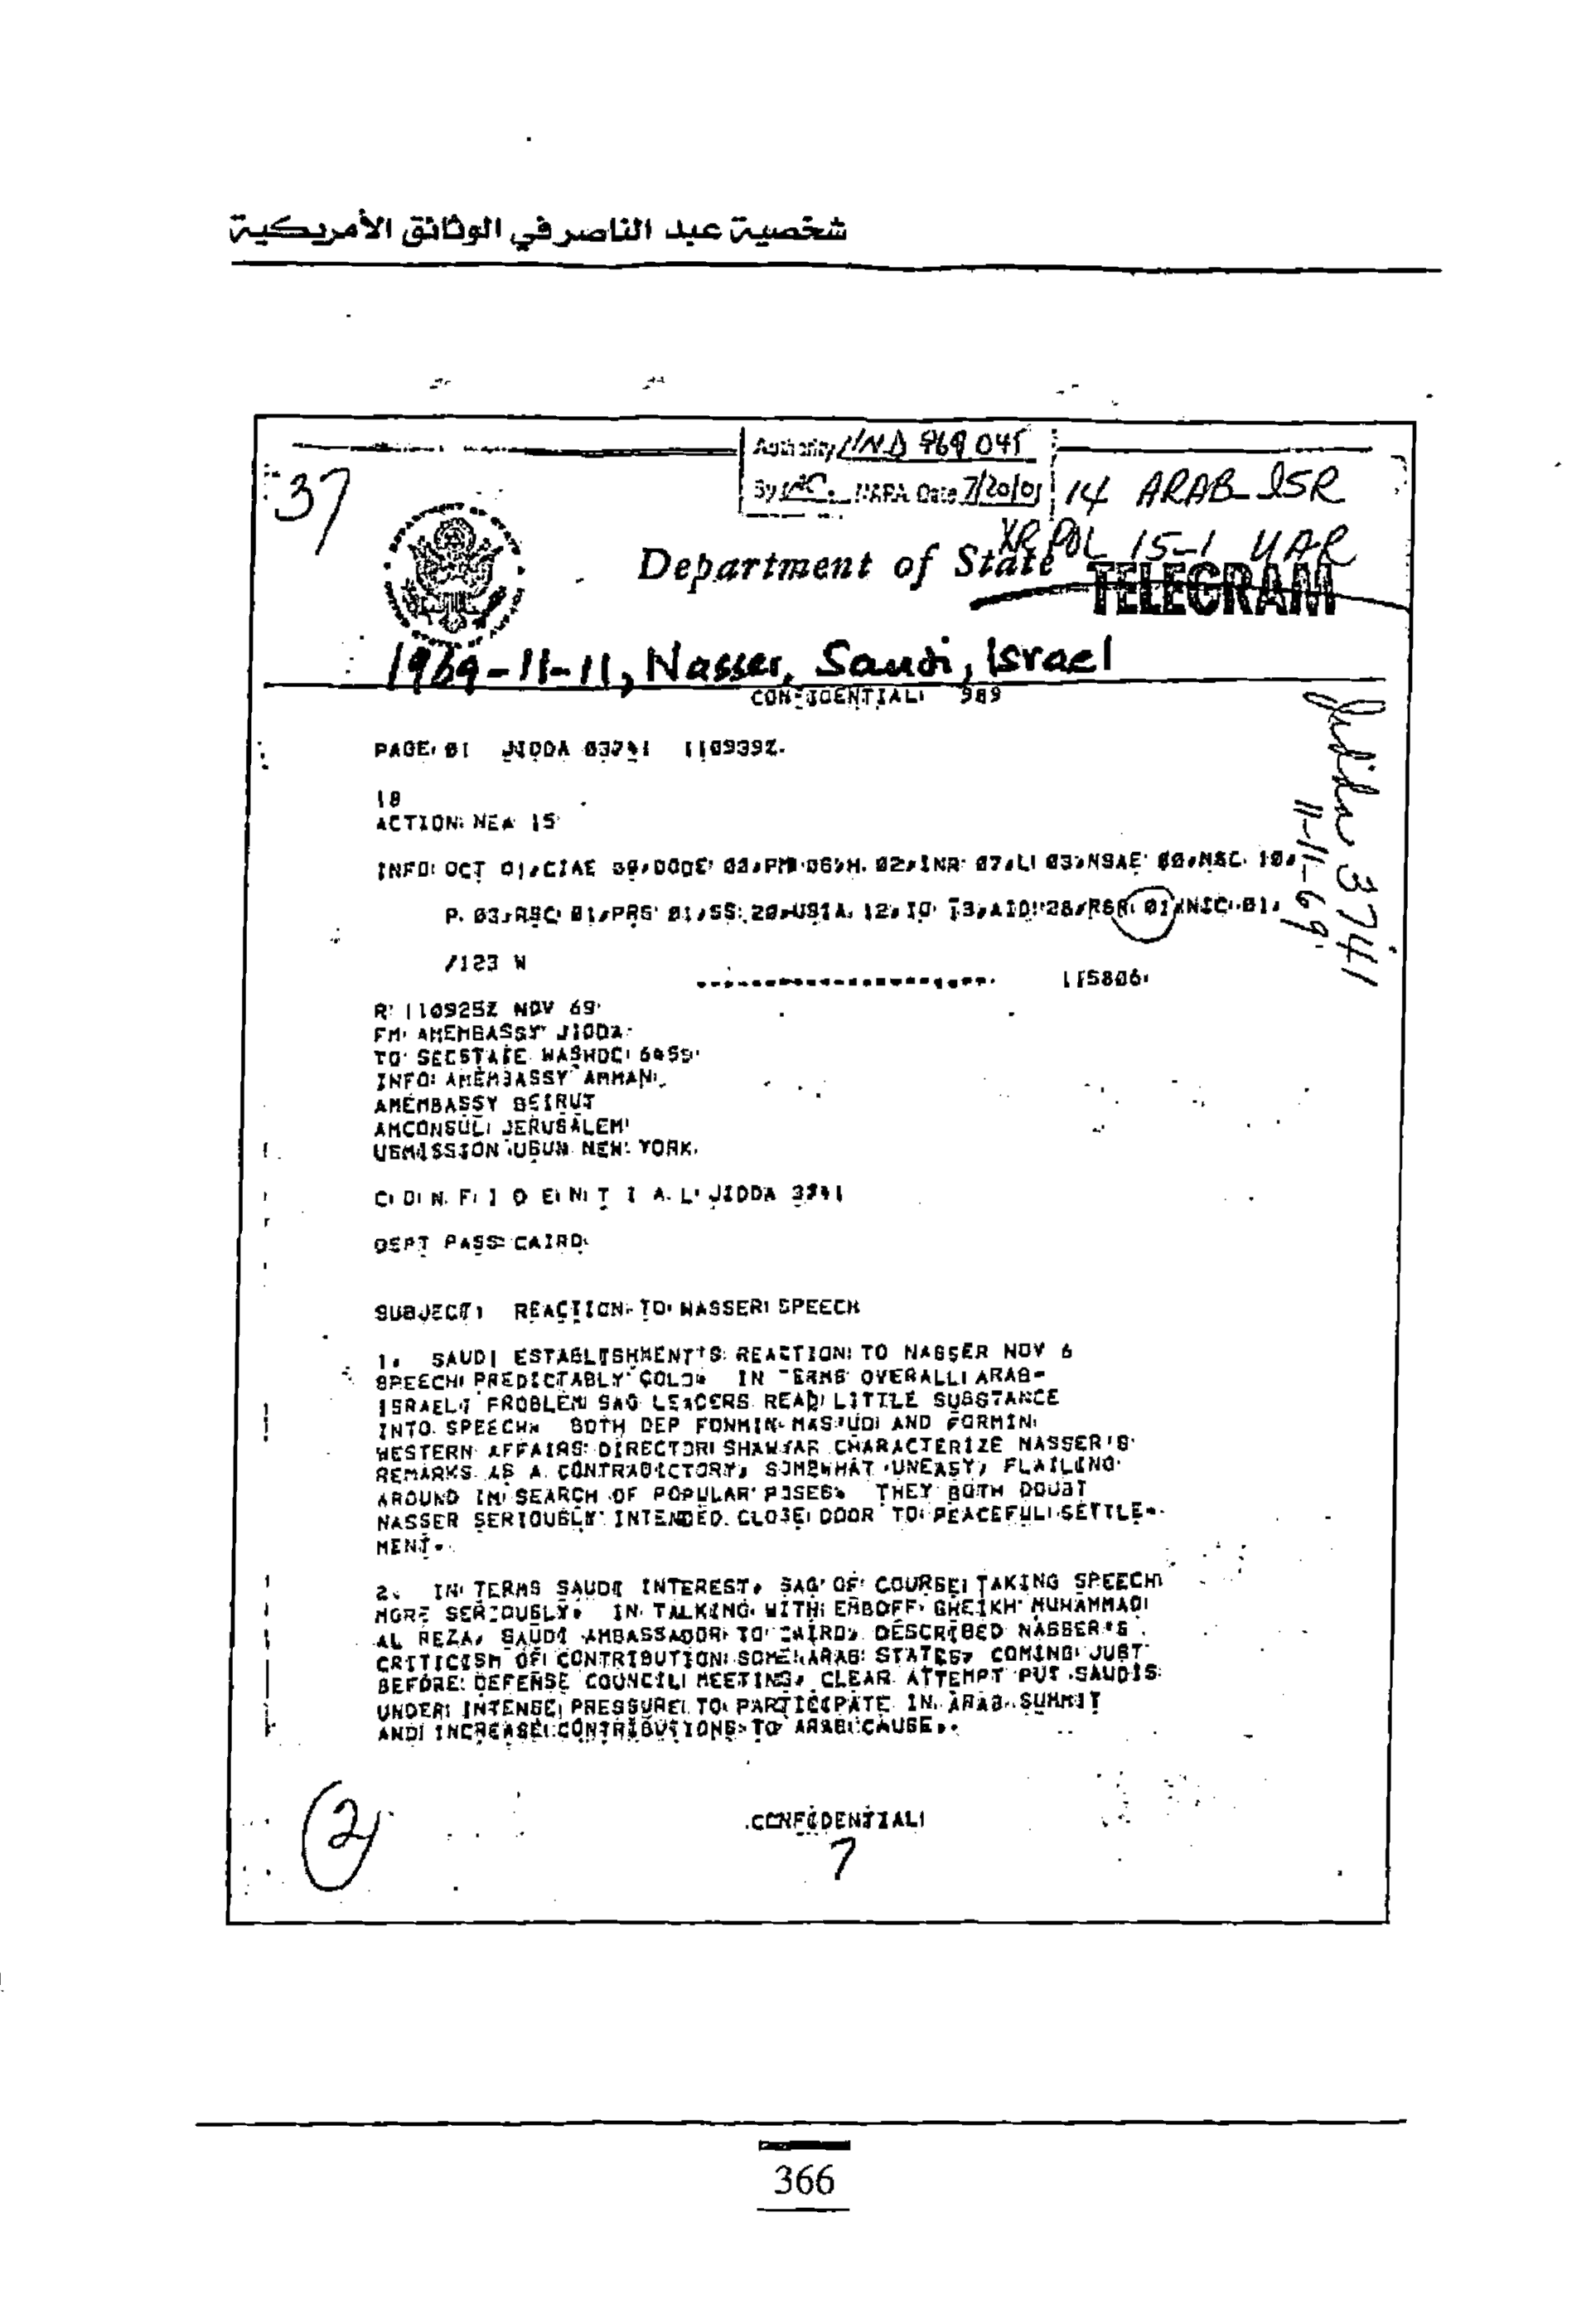 شخصية عبد الناصر في الوثائق الأمريكية
Authority NND 969 045
By NARA Date 7/20/01
37
14 ARAB-ISR
XR POL 15-1 UAR
Department of State TELEGRAM
1969-11-11, Nasser, Saudi, Israel
CONFIDENTIAL 989
Jidda 3741
11-11-69
PAGE 01 JIDDA 03741 110939Z
18
ACTION NEA 15
INFO OCT 01,CIAE 00,DODE 00,PM 06,H 02,INR 07,L 03,NSAE 00,NSC 10,
P 03,RSC 01,PRS 01,SS 20,USIA 12,IO 13,AID 28,RSR 01,NIC 01,
/123 W
115806
R 110925Z NOV 69
FM AMEMBASSY JIDDA
TO SECSTATE WASHDC 6459
INFO AMEMBASSY AMMAN
AMEMBASSY BEIRUT
AMCONSUL JERUSALEM
USMISSION USUN NEW YORK
C O N F I D E N T I A L JIDDA 3741
DEPT PASS CAIRO
SUBJECT: REACTION TO NASSER SPEECH
1. SAUDI ESTABLISHMENT'S REACTION TO NASSER NOV 6
SPEECH PREDICTABLY COLD. IN TERMS OVERALL ARAB-
ISRAELI PROBLEM SAG LEADERS READ LITTLE SUBSTANCE
INTO SPEECH. BOTH DEP FONMIN MAS'UDI AND FORMIN
WESTERN AFFAIRS DIRECTOR SHAWAF CHARACTERIZE NASSER'S
REMARKS AS A CONTRADICTORY, SOMEWHAT UNEASY, FLAILING
AROUND IN SEARCH OF POPULAR POSES. THEY BOTH DOUBT
NASSER SERIOUSLY INTENDED CLOSE DOOR TO PEACEFUL SETTLE-
MENT.
2. IN TERMS SAUDI INTEREST, SAG OF COURSE TAKING SPEECH
MORE SERIOUSLY. IN TALKING WITH EMBOFF SHEIKH MUHAMMAD
AL REZA, SAUDI AMBASSADOR TO CAIRO, DESCRIBED NASSER'S
CRITICISM OF CONTRIBUTION SOME ARAB STATES, COMING JUST
BEFORE DEFENSE COUNCIL MEETING, CLEAR ATTEMPT PUT SAUDIS
UNDER INTENSE PRESSURE TO PARTICIPATE IN ARAB SUMMIT
AND INCREASE CONTRIBUTIONS TO ARAB CAUSE.
2
CONFIDENTIAL
7
366